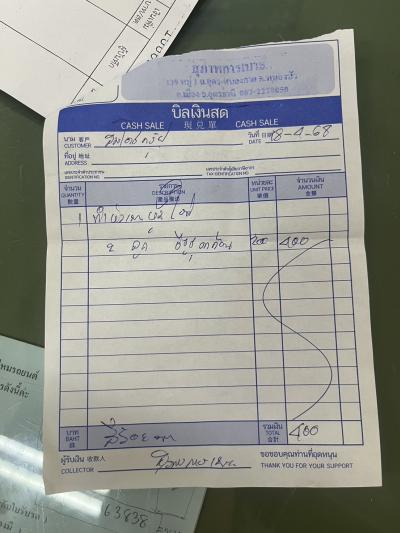 สุภาพการเบาะ
139 หมู่ 1 ถ.อุดร-หนองคาย ต.หมูม่น
อ.เมือง จ.อุดรธานี
บิลเงินสด
CASH SALE 現兑單 CASH SALE
นาม 客戶
CUSTOMER
วันที่ 日期
DATE 18-4-68
ที่อยู่ 地址
ADDRESS
เลขประจำตัวประชาชน
IDENTIFICATION NO.
เลขประจำตัวผู้เสียภาษีอากร
TAX IDENTIFICATION NO.
จำนวน
QUANTITY
數量
รายการ
DESCRIPTION
หน่วยละ
UNIT PRICE
單價
จำนวนเงิน
AMOUNT
金額
1
2 ลูก 200 400
บาท
BAHT
銖
สี่ร้อยบาท
รวมเงิน
TOTAL 400
合計
ผู้รับเงิน 收款人
COLLECTOR
ขอขอบคุณท่านที่อุดหนุน
THANK YOU FOR YOUR SUPPORT
63838